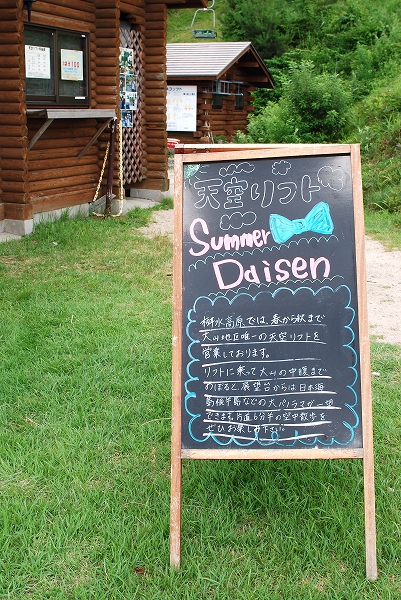 天空リフト
Summer
Daisen
桝水高原では、春から秋まで
大山地区唯一の天空リフトを
営業しております。
リフトに乗って大山の中腹まで
のぼると、展望台からは日本海
島根半島などの大パノラマが一望
できます。片道6分半の空中散歩を
ぜひお楽しみ下さい。